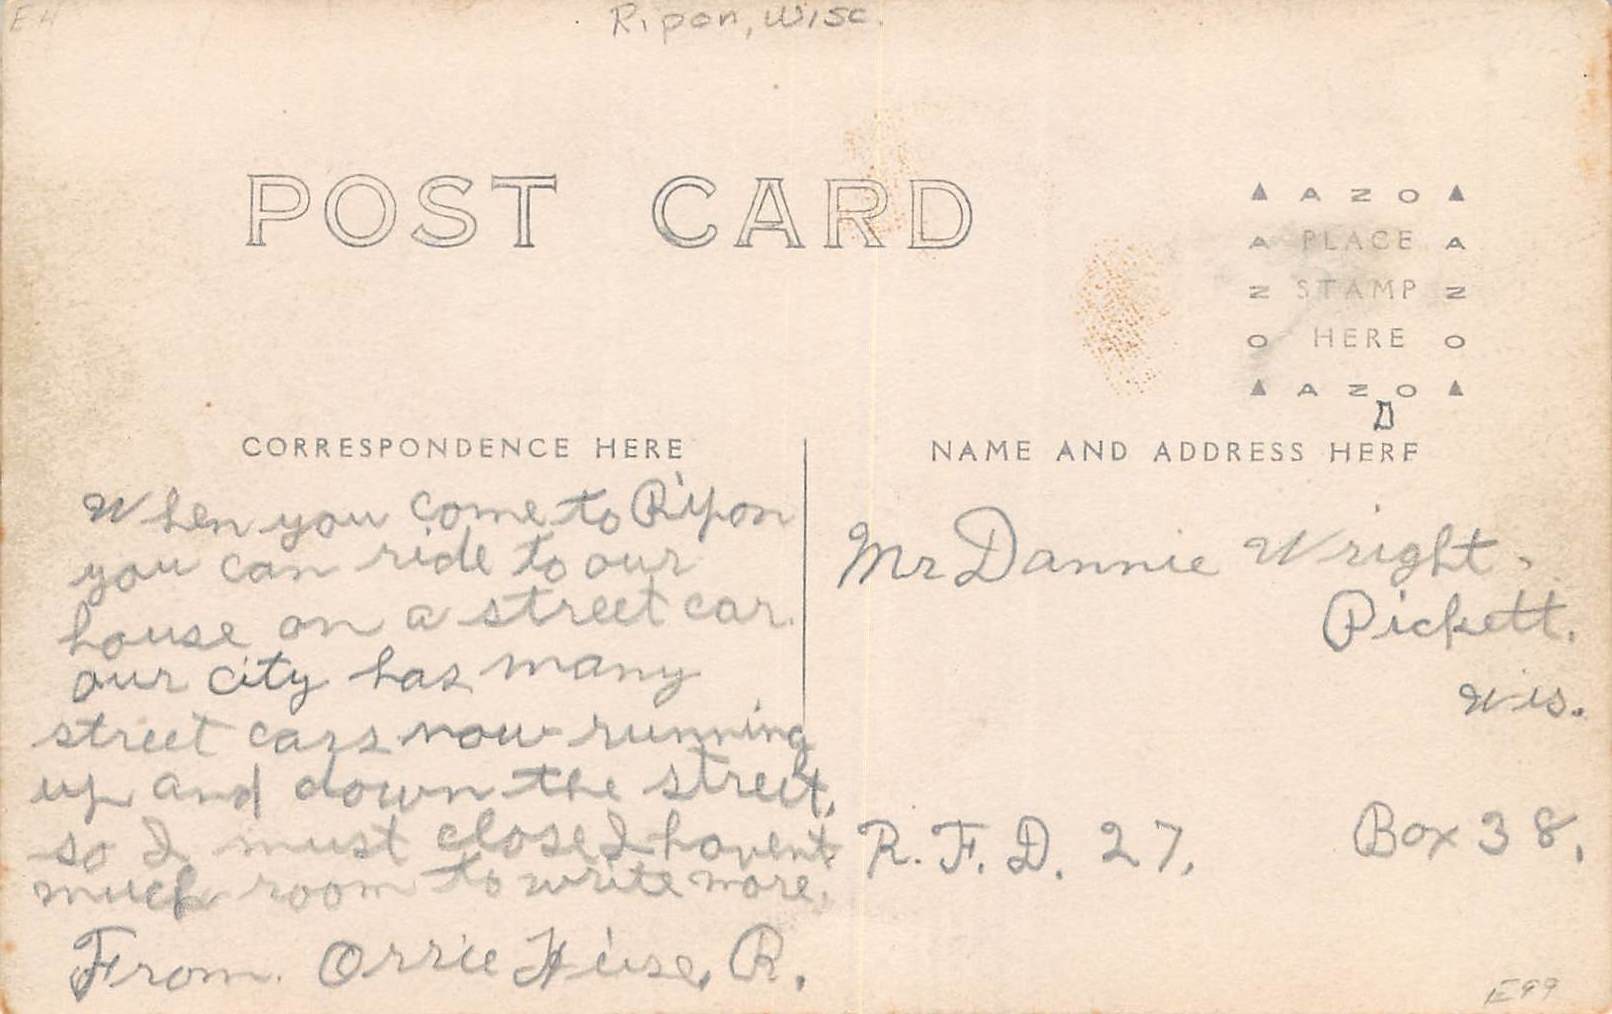 E4
Ripon, Wisc.
POST CARD
▲ A Z O ▲
A PLACE A
Z STAMP Z
O HERE O
▲ A Z O ▲
CORRESPONDENCE HERE
NAME AND ADDRESS HERE
When you come to Ripon
you can ride to our
house on a street car.
our city has many
street cars now running
up and down the street,
so I must close I havent
much room to write more.
From. Orrie R.
Mr Dannie Wright.
Pickett.
Wis.
R.F.D. 27, Box 38,
E99